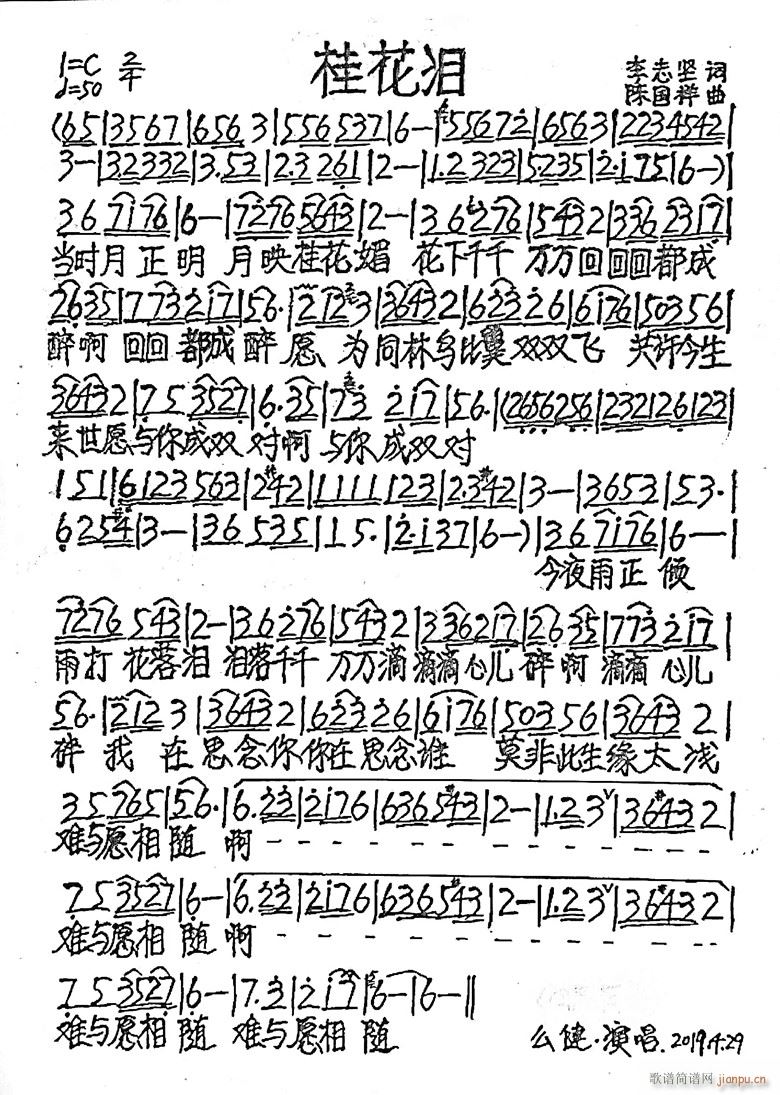 桂花泪
1=C 2/4
♩=50
李志坚 词
陈国祥 曲
(65|3567|656 3|556537|6—|55672̇|6563|2234542|
3—|32332|3.53|2.3261|2—|1.2323|5.235|2̇.i75|6—)|
36 7i76|6—|72̇76 5643|2—|36 2̇76|5432|336 2317|
当时月正明 月映桂花媚 花下千千 万万回回回都成
26 35|773̇ 2̇i7|56.|2123|36432|623̇26|6i76|503 56|
醉啊 回回都成醉 愿 为同林鸟比翼双双双飞 共许今生
36432|75 3527|6.35|73̇ 2̇i7|56.|(2656256|232126123|
来世愿与你成双 对啊 与你成双对
151|6123563|2#42|1111123|2.3#42|3—|3653|53.|
625#4|3—|36 535|15.|2̇.i37|6—)|36 7i76|6—|
今夜雨正倾
72̇76 543|2—|36 2̇76|5432|336217|26 35|773̇ 2̇i7|
雨打 花落泪 泪落千千 万万滴滴滴心儿 碎啊 滴滴 心儿
56.|2123|36432|623̇26|6i76|503 56|36432|
碎 我 在思念你你在思念谁 莫非此生缘太浅
35 765|56.|6.2̇3̇|2̇i76|6365#43|2—|1.23ᵛ|36#432|
难与愿相随 啊
7.5 3527|6—|6.2̇3̇|2̇i76|6365#43|2—|1.23ᵛ|36#432|
难与愿相随 啊
7.5 3527|6—|7.3̇|2̇i77|6—|6—‖
难与愿相随 难与愿相随
么健·演唱.2019.4.29
歌谱简谱网
jianpu.cn